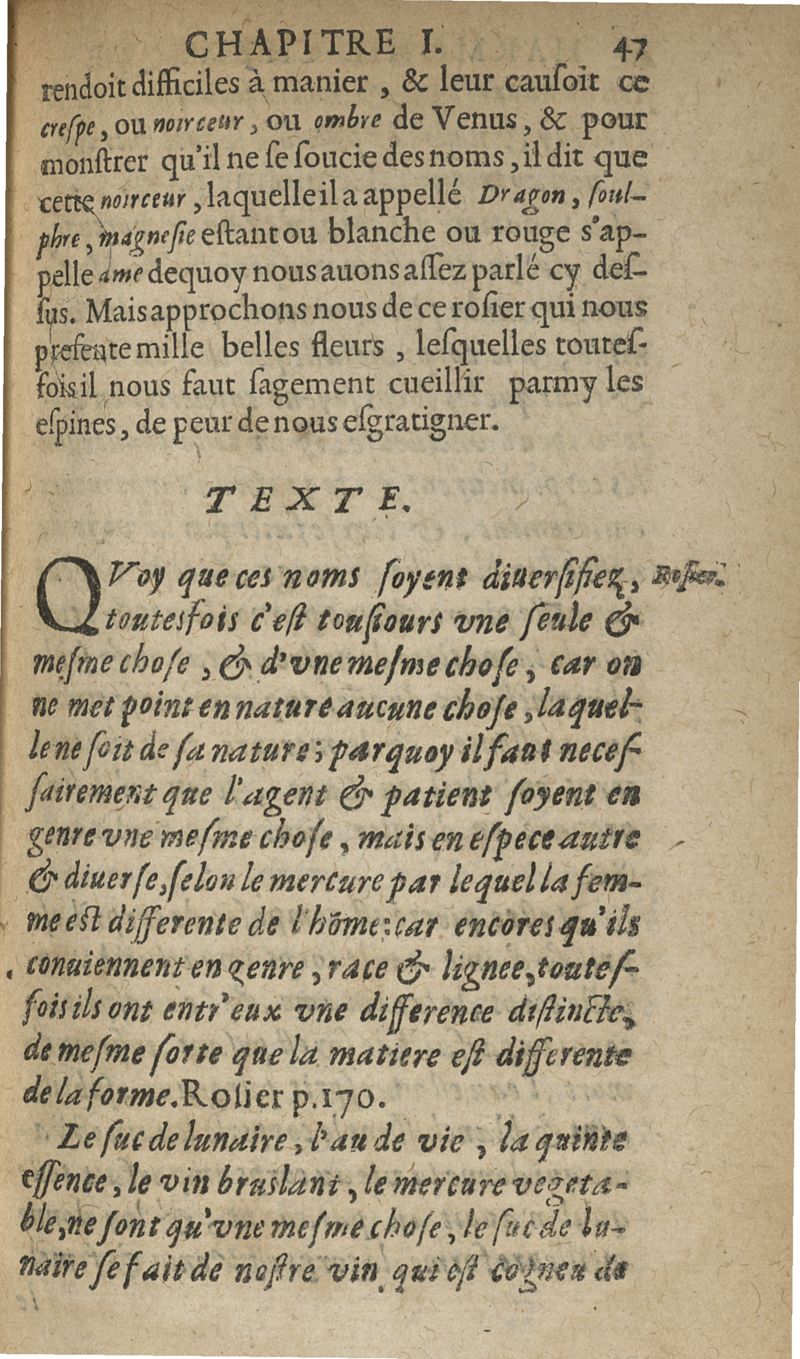 CHAPITRE I. 47
rendoit difficiles à manier, & leur cauſoit ce
creſpe, ou noirceur, ou ombre de Venus, & pour
monſtrer qu'il ne ſe ſoucie des noms, il dit que
cette noirceur, laquelle il a appellé Dragon, ſoul-
phre, magneſie eſtant ou blanche ou rouge s'ap-
pelle ame dequoy nous auons aſſez parlé cy deſ-
ſus. Mais approchons nous de ce roſier qui nous
preſente mille belles fleurs, leſquelles touteſ-
fois il nous faut ſagement cueillir parmy les
eſpines, de peur de nous eſgratigner.
TEXTE.
QVoy que ces noms ſoyent diuerſifiez, Roſier.
toutesfois c'eſt touſiours vne ſeule &
meſme choſe, & d'vne meſme choſe, car on
ne met point en nature aucune choſe, laquel-
le ne ſoit de ſa nature; parquoy il faut neceſ-
ſairement que l'agent & patient ſoyent en
genre vne meſme choſe, mais en eſpece autre
& diuerſe, ſelon le mercure par lequel la fem-
me eſt differente de l'hõme: car encores qu'ils
conuiennent en genre, race & lignee, touteſ-
fois ils ont entr'eux vne difference diſtincte,
de meſme ſorte que la matiere eſt differente
de la forme. Roſier p. 170.
Le ſuc de lunaire, l'au de vie, la quinte
eſſence, le vin bruslant, le mercure vegeta-
ble, ne ſont qu'vne meſme choſe, le ſuc de lu-
naire ſe fait de noſtre vin qui eſt cogneu de